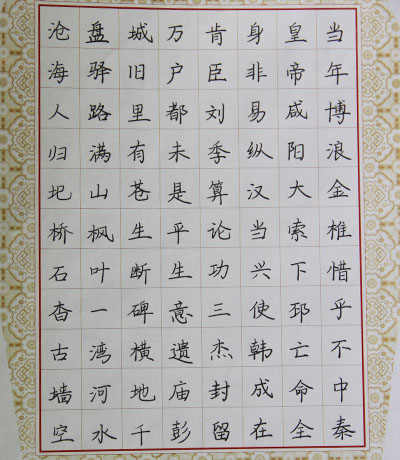 当年博浪金椎惜乎不中秦
皇帝咸阳大索下邳亡命全
身非易纵汉当兴使韩成在
肯臣刘季算论功三杰封留
万户都未是平生意遗庙彭
城旧里有苍生断碑横地千
盘驿路满山枫叶一湾河水
沧海人归圯桥石杳古墙空